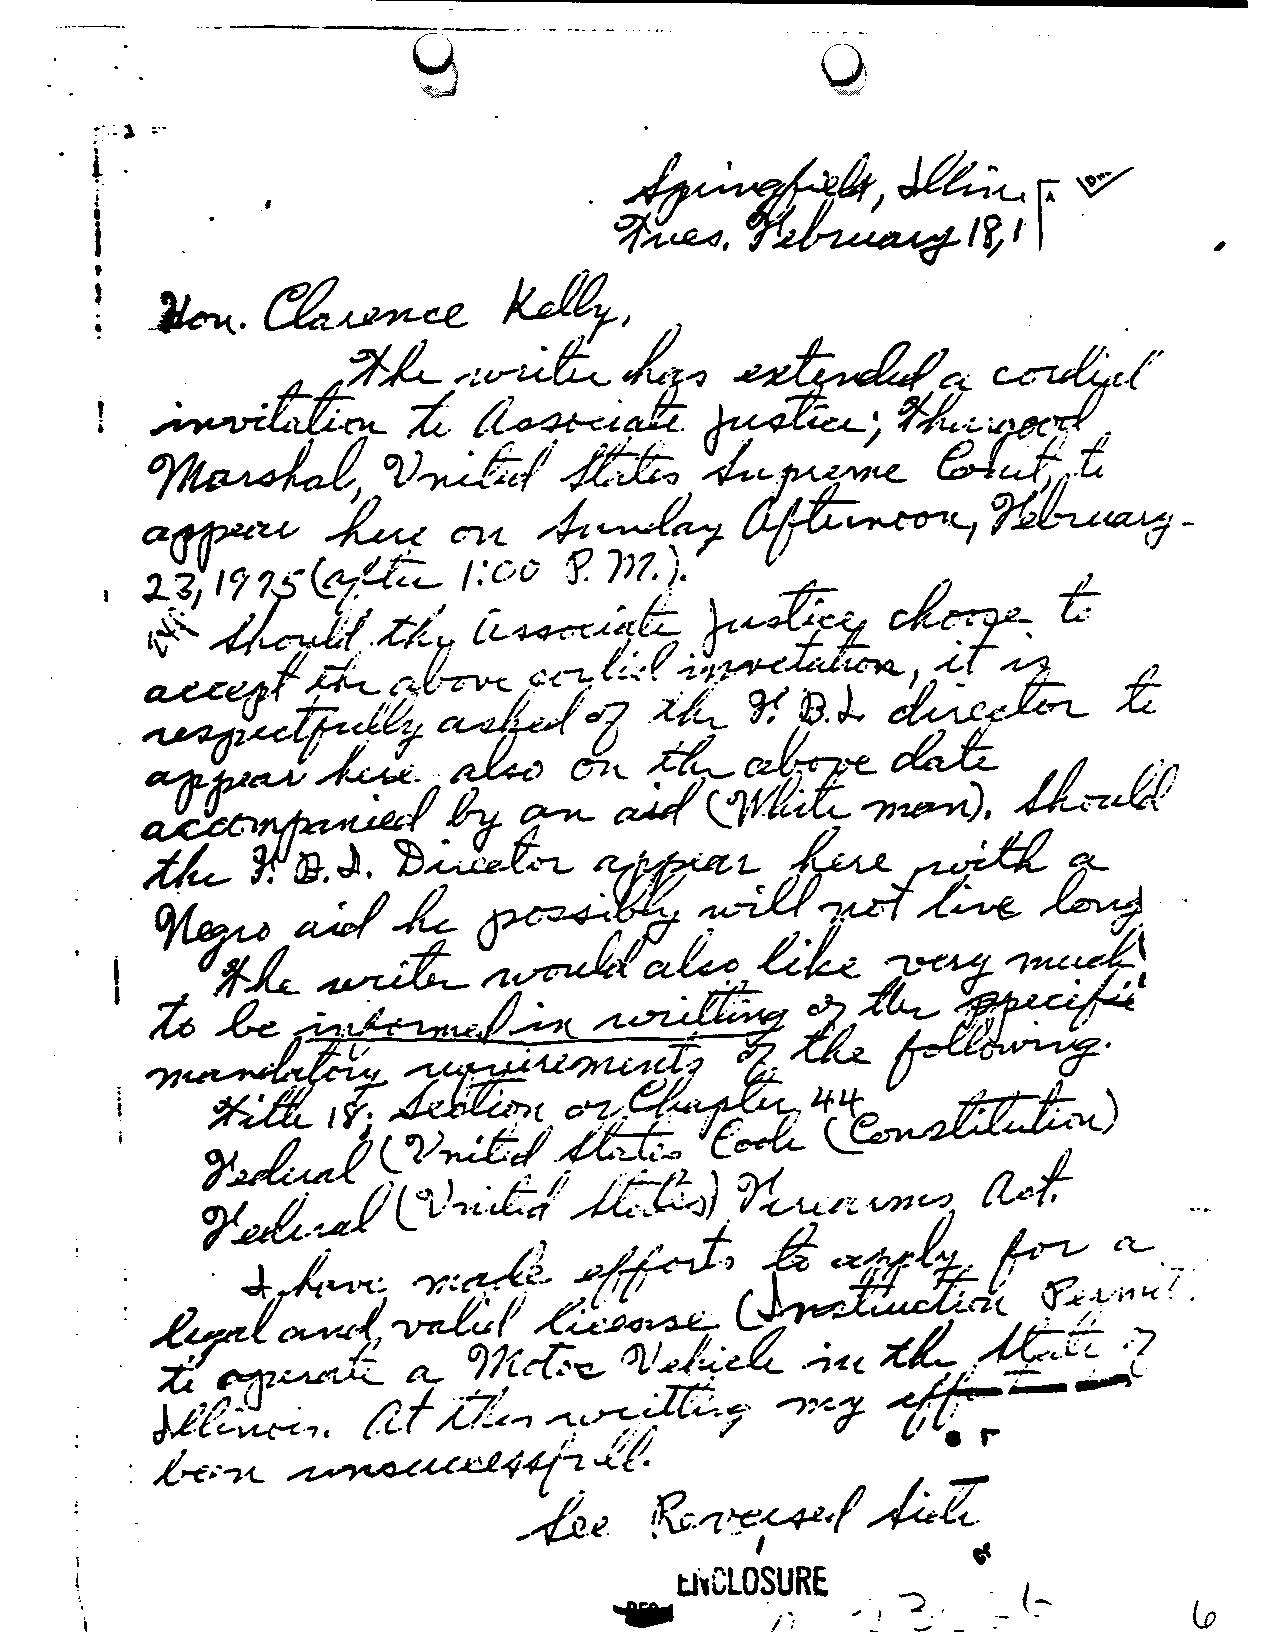 Springfield, Illin
Tues. February 18, 1
Hon. Clarence Kelly,
The writer has extended a cordial
invitation to Associate Justice; Thurgood
Marshal, United States Supreme Court, to
appear here on Sunday Afternoon, February
23, 1975 (after 1:00 P.M.).
Should the Associate Justice choose to
accept the above cordial invetation, it is
respectfully asked of the F.B.I. director to
appear here also on the above date
accompanied by an aid (White man). Should
the F.B.I. Director appear here with a
Negro aid he possibly will not live long
The writer would also like very much
to be informed in writting of the specific
mandatory requirements of the following.
Title 18; Section or Chapter 44
Federal (United States Code (Constitution)
Federal (United States) Firearms Act.
I have made efforts to apply for a
legal and valid license (Instruction Permit
to operate a Motor Vehicle in the State of
Illinois. At this writting my eff
been unsuccessfull.
See Reversed Side
ENCLOSURE
6